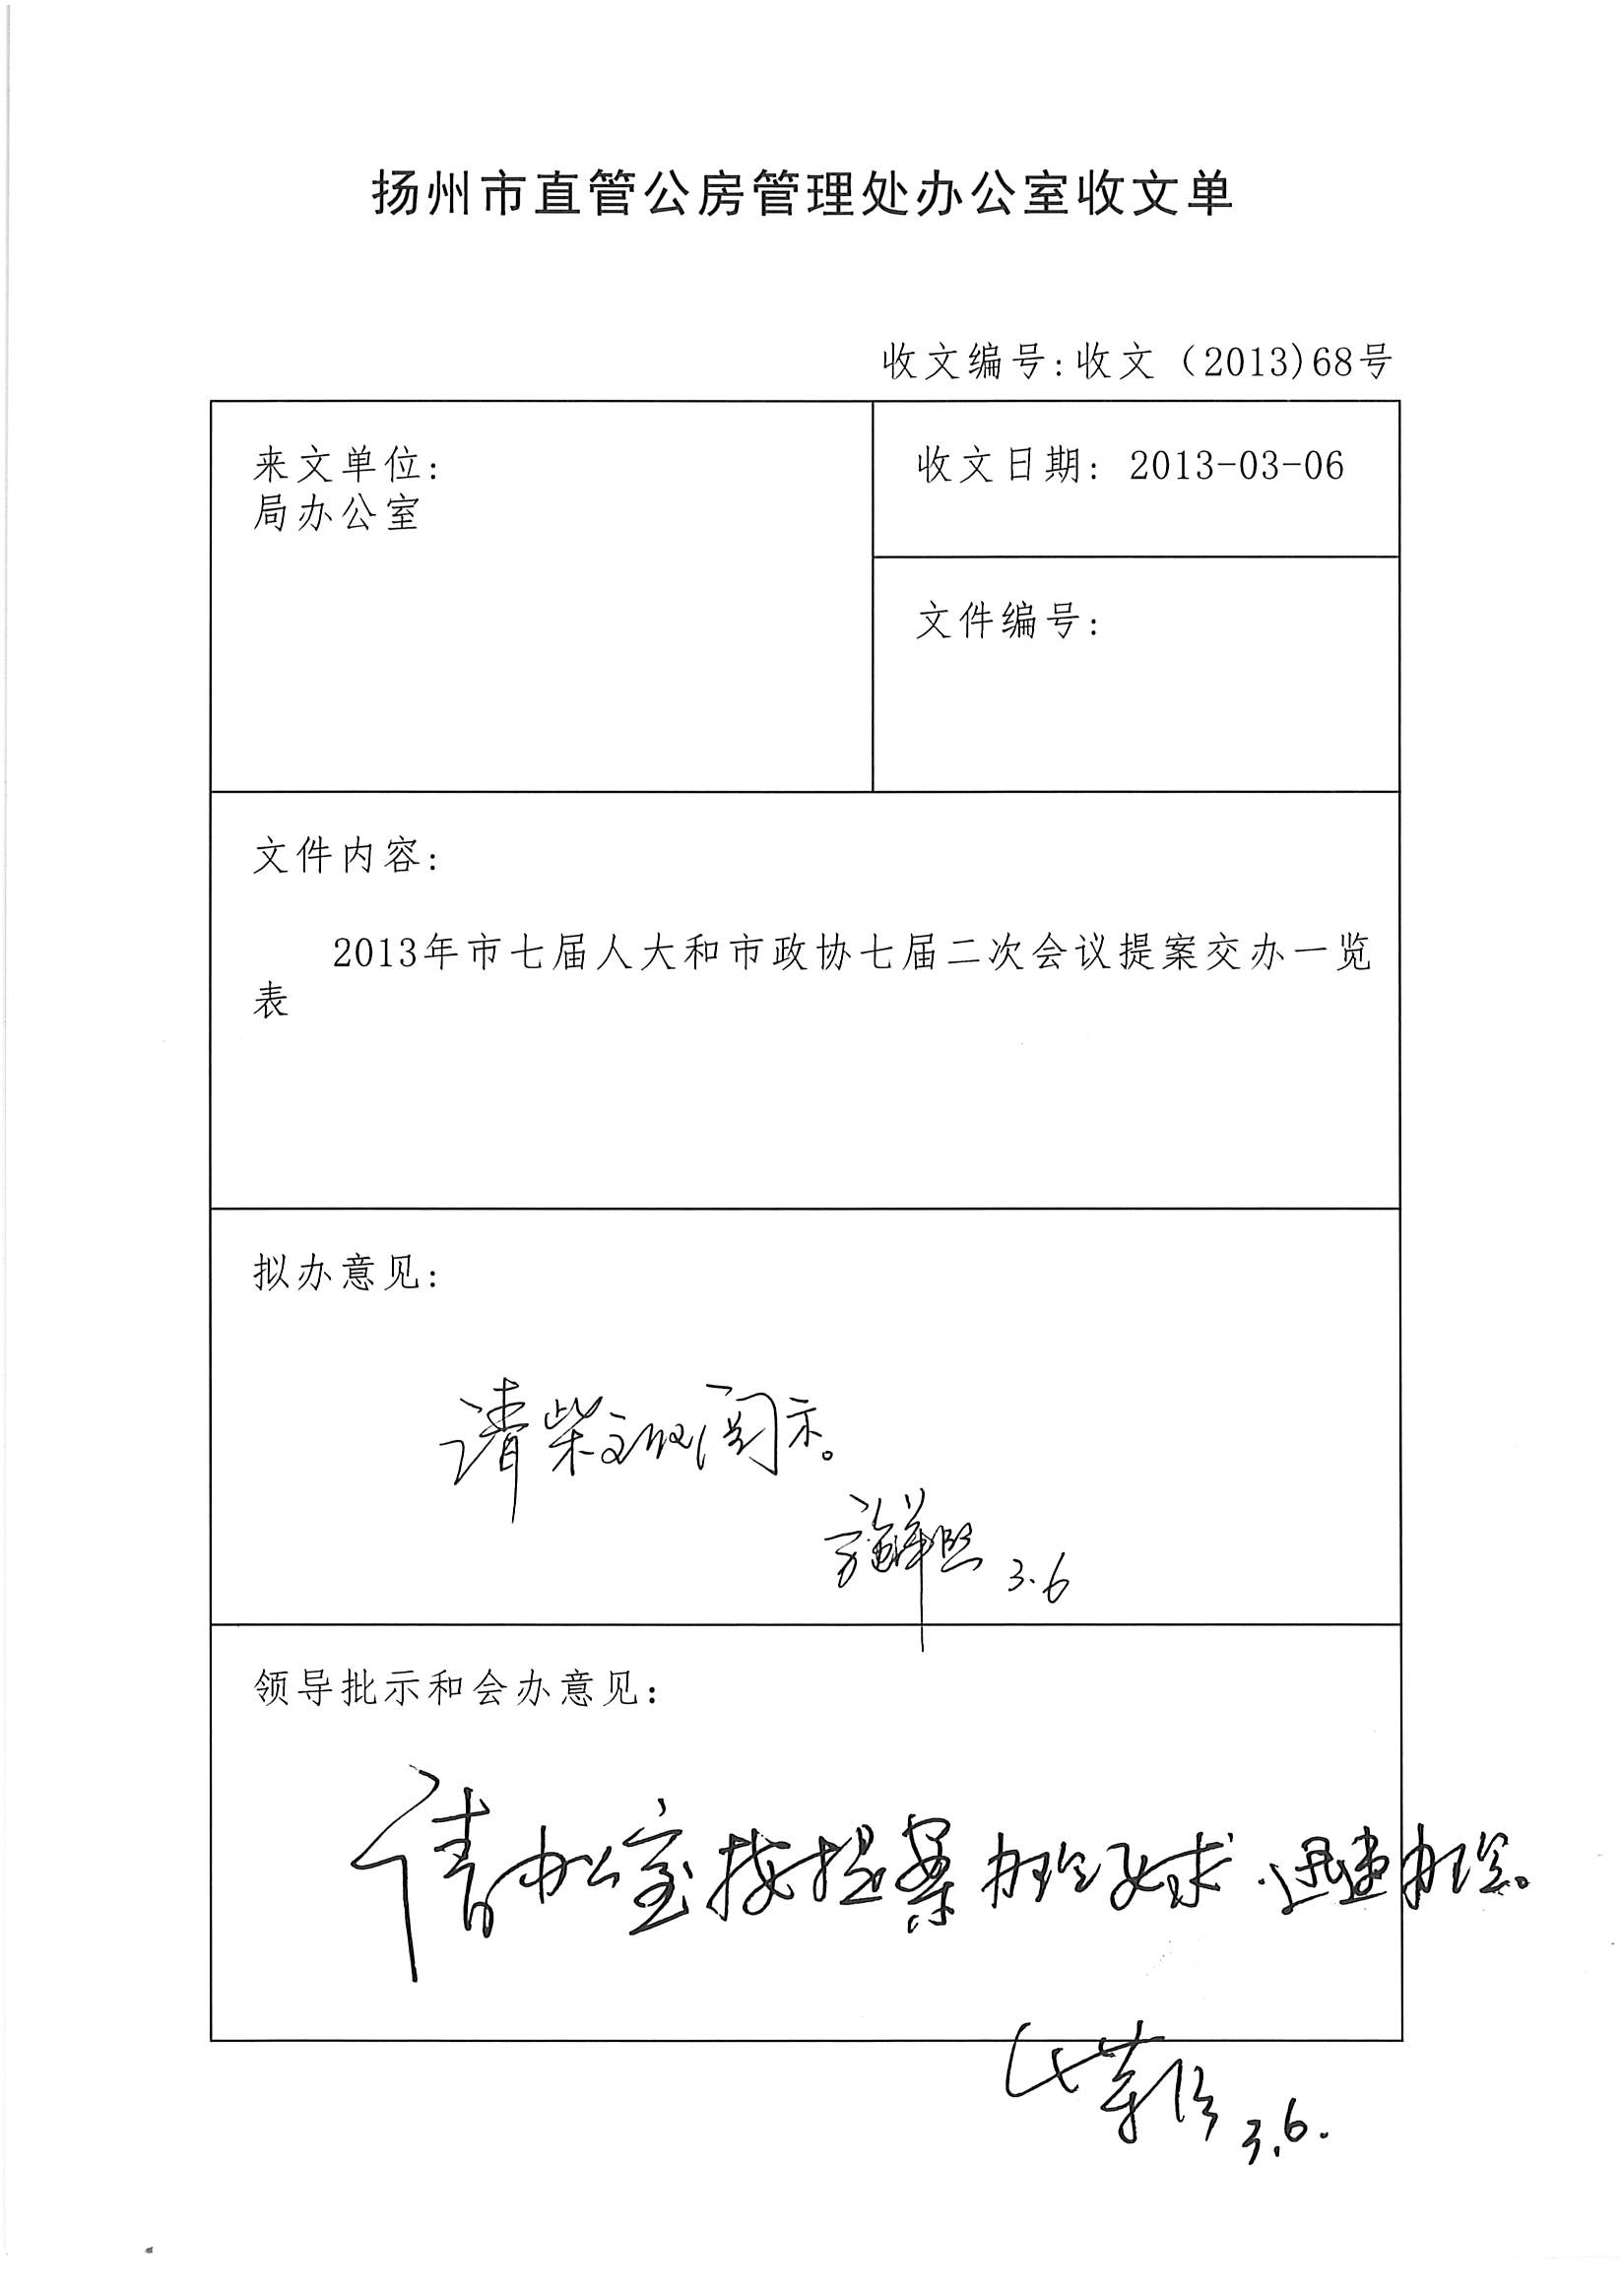 扬州市直管公房管理处办公室收文单
收文编号:收文（2013)68号
来文单位:
局办公室
收文日期: 2013-03-06
文件编号:
文件内容:
2013年市七届人大和市政协七届二次会议提案交办一览
表
拟办意见:
请柴主任阅示。
3.6
领导批示和会办意见:
请办公室按提案办理要求.迅速办理。
3.6.